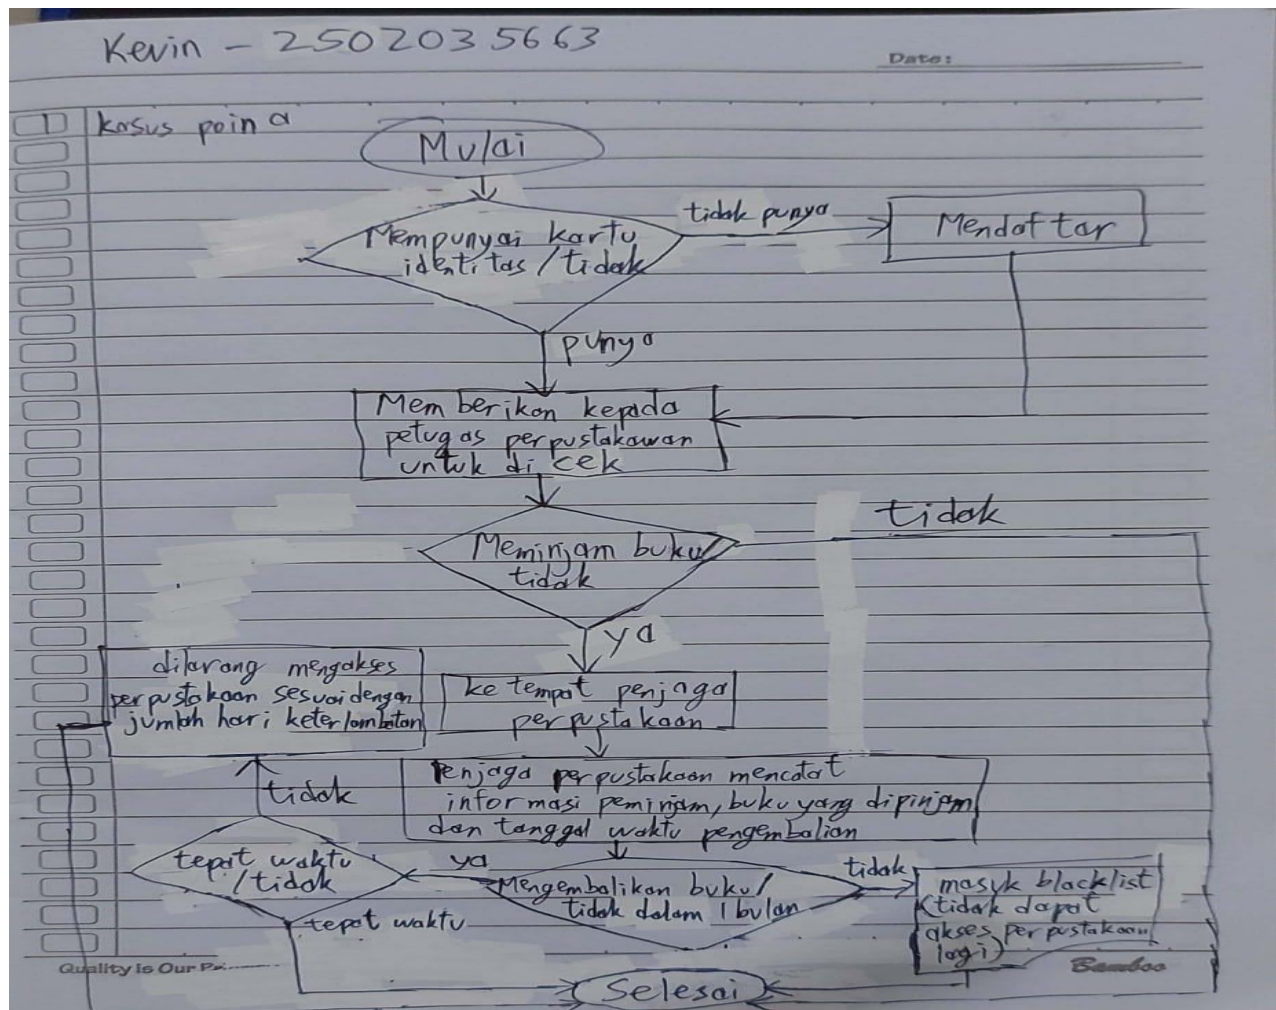 Kevin - 2502035663
Date:
1 kasus poin a
Mulai
Mempunyai kartu
identitas / tidak
tidak punya
Mendaftar
punya
Memberikan kepada
petugas perpustakawan
untuk di cek
Meminjam buku/
tidak
tidak
ya
dilarang mengakses
perpustakaan sesuai dengan
jumlah hari keterlambatan
ke tempat penjaga
perpustakaan
Penjaga perpustakaan mencatat
informasi peminjam, buku yang dipinjam
dan tanggal waktu pengembalian
tidak
tepat waktu
/tidak
ya
Mengembalikan buku/
tidak dalam 1 bulan
tidak
masuk blacklist
(tidak dapat
akses perpustakaan
lagi)
tepat waktu
Selesai
Quality Is Our
Bamboo